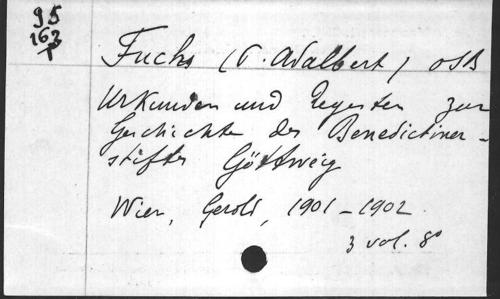 95
163
T
Fuchs (P. Adalbert) OSB
Urkunden und Regesten zur
Geschichte des Benedictiner-
stiftes Göttweig
Wien, Gerold, 1901-1902.
3 vol. 8°